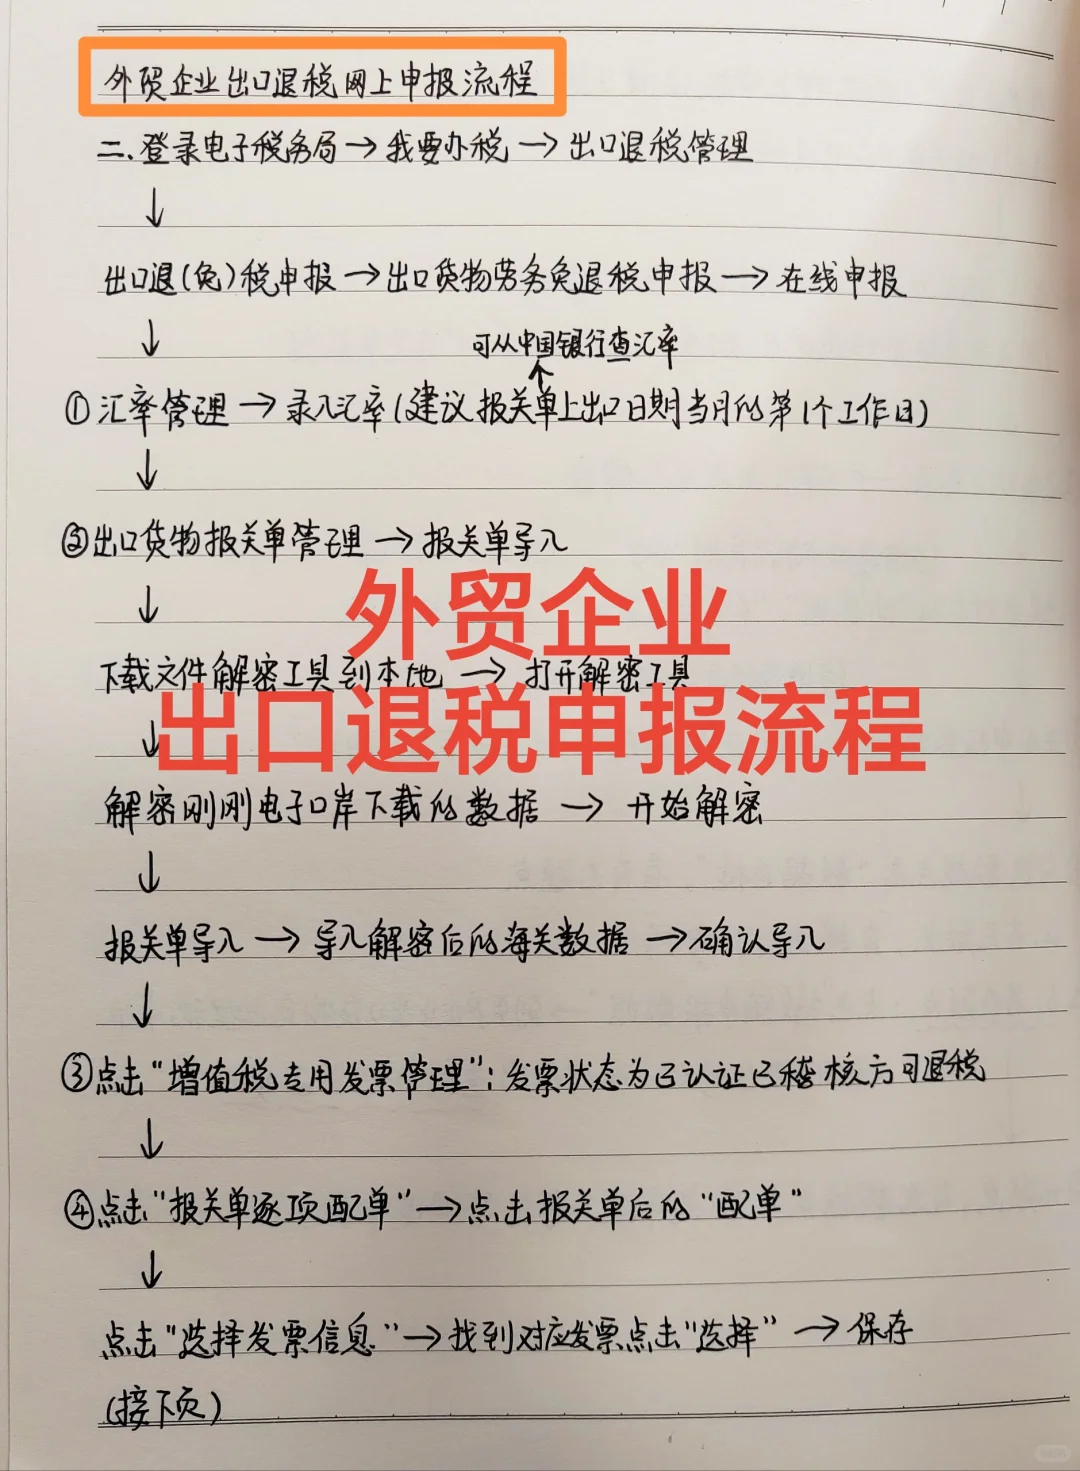 外贸企业出口退税网上申报流程
二、登录电子税务局→我要办税→出口退税管理
↓
出口退(免)税申报→出口货物劳务免退税申报→在线申报
↓
可从中国银行查汇率
↑
①汇率管理→录入汇率(建议报关单上出口日期当月的第1个工作日)
↓
②出口货物报关单管理→报关单导入
↓
外贸企业
下载文件解密工具到本地→打开解密工具
出口退税申报流程
↓
解密刚刚电子口岸下载的数据→开始解密
↓
报关单导入→导入解密后的海关数据→确认导入
↓
③点击“增值税专用发票管理”:发票状态为已认证已稽核方可退税
↓
④点击“报关单逐项配单”→点击报关单后的“配单”
↓
点击“选择发票信息”→找到对应发票点击“选择”→保存
(接下页)